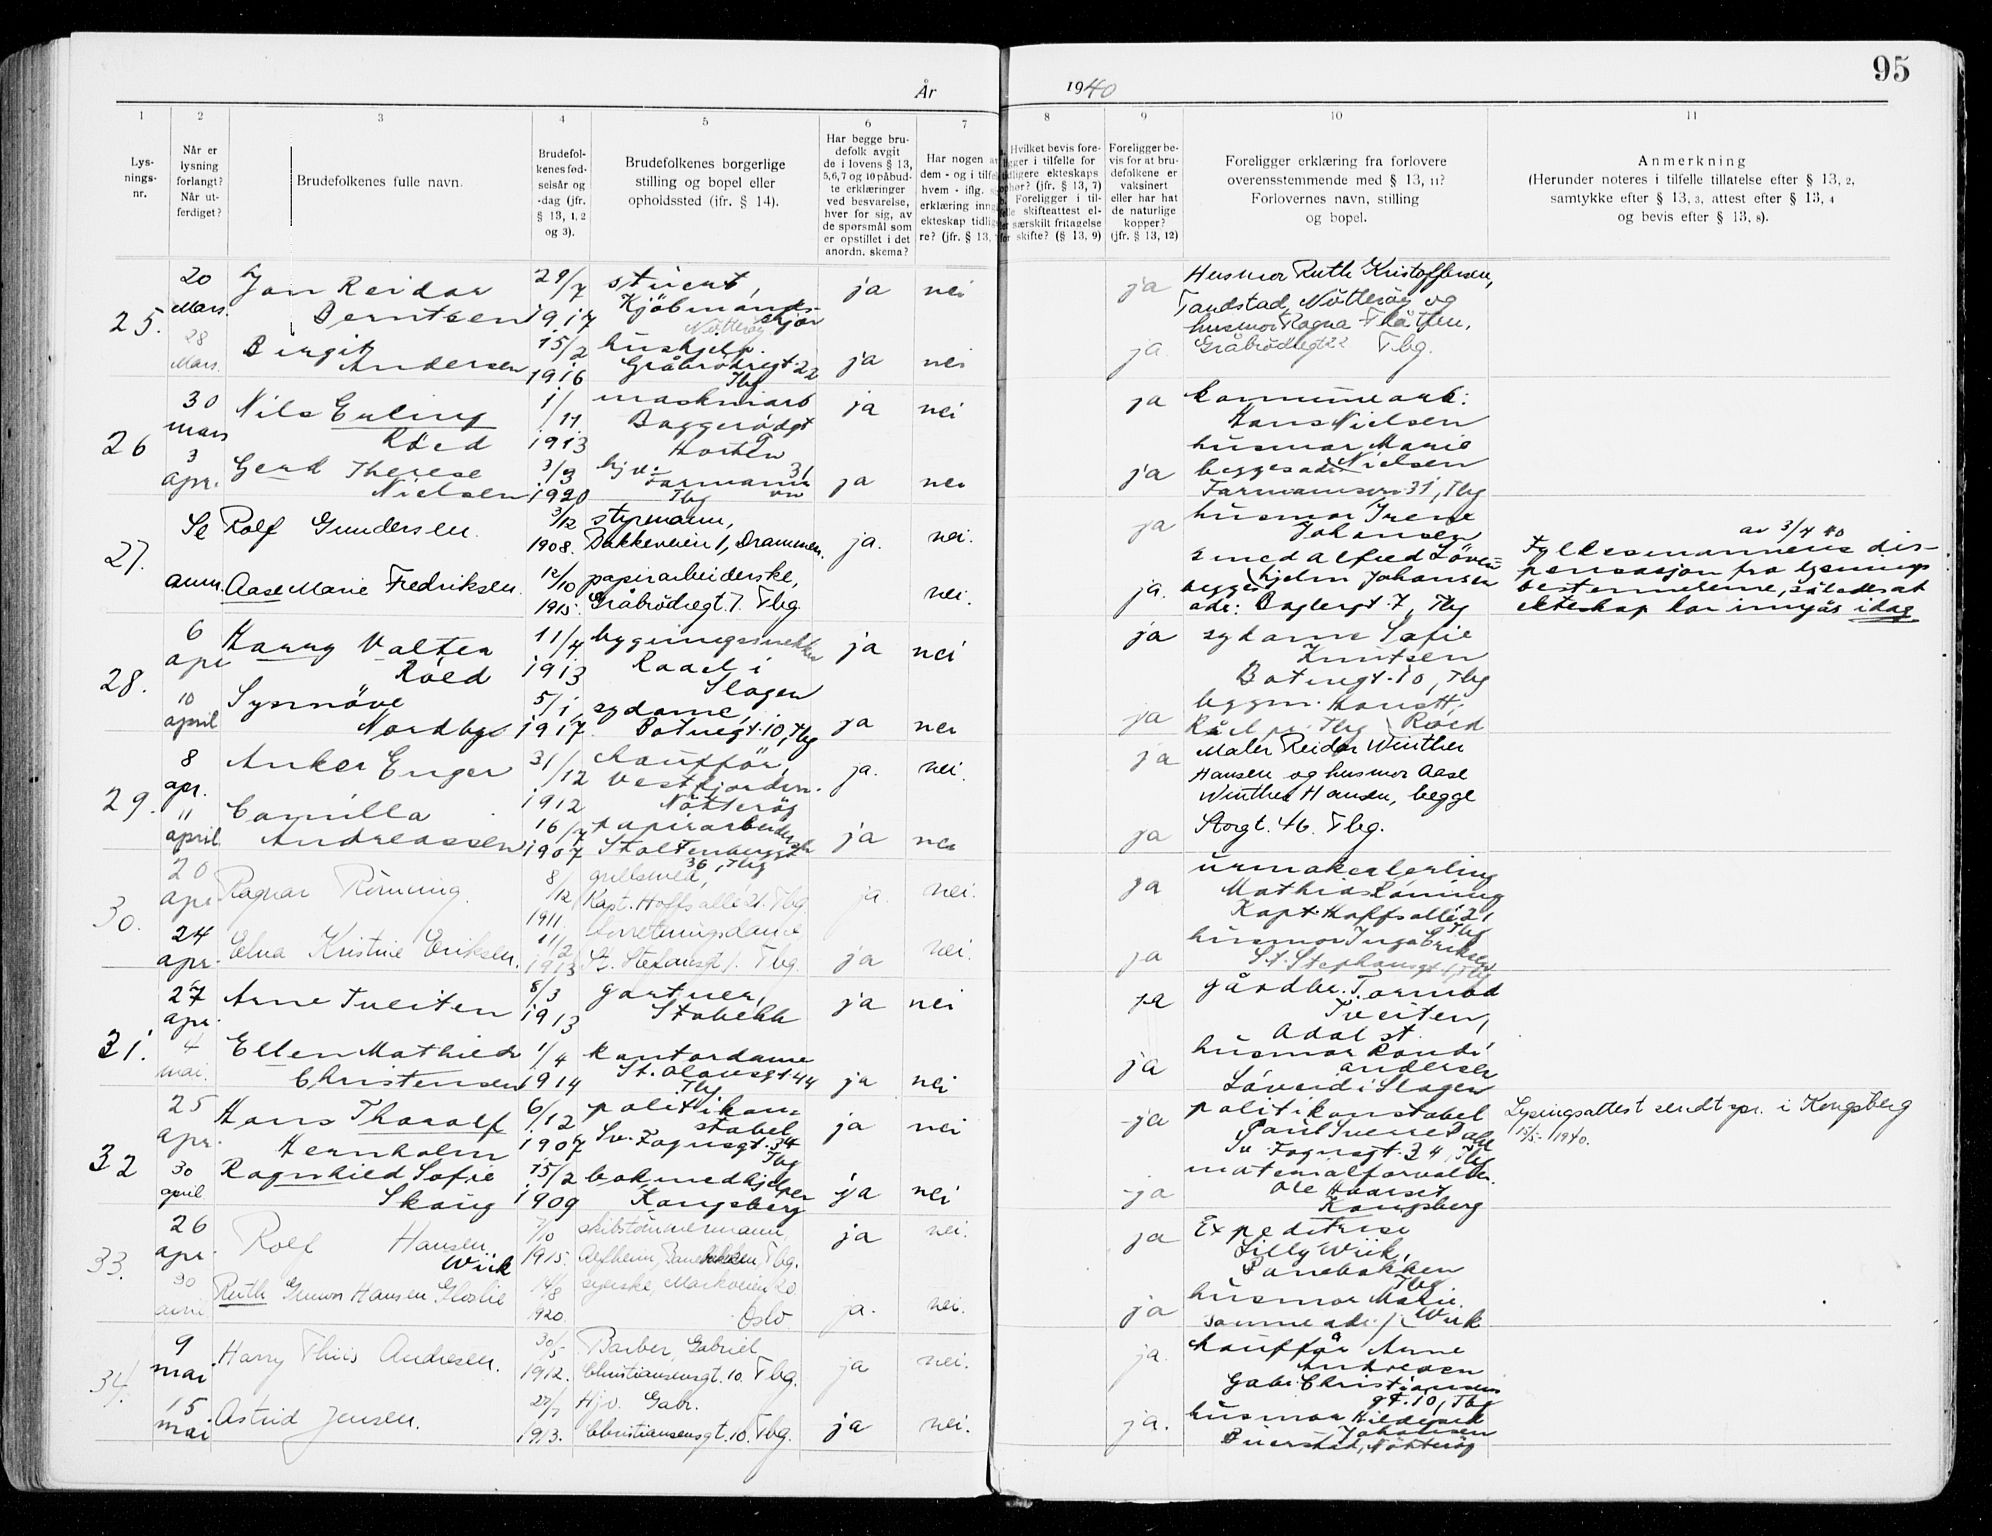 95
År 1940
1 2 3 4 5 6 7 8 9 10 11
Lys-
nings-
nr.
Når er
lysning
forlangt?
Når ut-
ferdiget?
Brudefolkenes fulle navn.
Brudefol-
kenes fød-
selsår og
-dag (jfr.
§ 13, 1, 2
og 3).
Brudefolkenes borgerlige
stilling og bopel eller
opholdssted (ifr. § 14).
Har begge bru-
defolk avgit
de i lovens § 13,
5, 6, 7 og 10 påbud-
te erklæringer
ved besvarelse,
hver for sig, av
de spørsmål som
er opstillet i det
anordn. skema?
Har nogen a
dem - og i tilfel
hvem - iflg.
erklæring inng
ekteskap tidlig
re? (jfr. § 13,
Hvilket bevis fore-
ligger i tilfelle for
idligere ekteskaps
ophør? (jfr. § 13, 7)
Foreligger i til-
skifteattest el-
særskilt fritagelse
for skifte? (§ 13, 9)
Foreligger be-
vis for at bru-
defolkene er
vaksinert
eller har hat
de naturlige
kopper?
(jfr. § 13, 12)
Foreligger erklæring fra forlovere
overensstemmende med § 13, 11?
Forlovernes navn, stilling
og bopel.
Anmerkning
(Herunder noteres i tilfelle tillatelse efter § 13, 2,
samtykke efter § 13, 3, attest efter § 13, 4
og bevis efter § 13, 8).
25.
20 Mars. Jan Reidar Berntsen 29/7 1917 student, Kjøbmands- Nøtterøy ja nei ja
Husmor Ruth Kristoffersen,
Tandstad, Nøtterøy og
husmor Ragna Flåtten,
Gråbrødregt 22 Tbg.
28 Mars. Birgit Andersen 15/2 1916 hushjelp. Gråbrødregt. 22 Tbg ja nei ja
26
30 mars Nils Erling Röed 1/11 1913 maskinarb Baggerødgt Horten ja nei ja
kommunearb:
Hans Nielsen
husmor Marie
Nielsen
begges adr
Farmannsvn 31, Tbg
3 apr. Gerd Therese Nielsen 3/9 1920 hjv. Farmanns vn 31 Tbg ja nei ja
27.
Rolf Gundersen. 3/12 1908. styrmann, Bakkeveien 1, Drammen. ja. nei. ja
husmor Irene
Johansen
smed Alfred Löven-
hjelm Johansen
begges
adr: Baglergt. 7, Tbg
av 3/4 40
Fylkesmannens dis-
pensasjon fra lysnings
bestemmelsene, således at
ekteskap kan inngås idag
Aase Marie Fredriksen. 12/10 1915. papirarbeiderske, Gråbrødregt. 7. Tbg. nei. ja.
28.
6 apr Harry Valter Röed 11/4 1913 bygningssnekker Raael i Slagen ja nei ja
sydame Sofie
Knutsen
Batmgt. 10, Tbg
byggm. Konst.
Røed
Råel pr. Tbg
10 april Synnöve Nordbye 5/1 1917. sydame, Batmgt. 10, Tbg ja nei ja
29.
8 apr. Anker Enger 31/12 1912 chauffør, Vestfjorden. Nøtterøy ja. nei. ja
Maler Reidar Winther
Hansen og husmor Aase
Winther Hansen, begge
Storgt. 46. Tbg.
11 april Camilla Andreassen 16/7 1907 papirarbeiderske Stoltenberggt 36, Tbg ja nei ja
30.
20 apr Ragnar Rönning. 8/12 1911. gullsmed, Kapt. Hoffs allé 21. Tbg. ja. nei. ja
urmakerlerling
Mathias Röning
Kapt. Hoffs allé 21
Tbg
husmor Inga Eriksen
St. Stephansgt 1, Tbg
24 apr. Elna Kristine Eriksen. 11/2 1913 forretningsdame St. Stefansgt 1. Tbg. ja nei. ja
31.
27 apr. Arne Tveiten 8/3 1913 gartner, Stabekk ja nei ja
gårdbr. Tormod
Tveiten,
Adal st.
husmor Randi
Andersen
Löveid i Slagen
4 mai. Ellen Mathilde Christensen 1/4 1914 kontordame St. Olavsgt 44 Tbg ja nei ja
32
25 apr. Hans Tharalf Hernholm 6/12 1907 politikon- stabel Sv. Foynsgt. 34 Tbg ja nei ja
politikonstabel
Paul Svene Dahl
Sv. Foynsgt. 34, Tbg
materialforvalter.
Ole Haarset
Kongsberg
Lysingsattest sendt spr. i Kongsberg
15/5 - 1940.
30 april Ragnhild Sofie Skaug 15/2 1909 bokmedhjelper Kongsberg ja nei ja
33.
26 apr. Rolf Hansen Wiik 7/10 1915. skibstömmermann, Alfheim, Banebakken Tbg. ja nei. ja
Expeditrise
Lilly Wiik,
Banebakken
Tbg
husmor Marie
Wiik
samme adr.
30 april Ruth Gunvor Hansen Gloslie 14/8 1920. syerske, Markveien 20. Oslo. ja. nei. ja
34.
9 mai Harry Thiis Andresen. 30/5 1912. Barber, Gabriel Christiansensgt. 10. Tbg. ja nei. ja.
chauffør Arne
Andresen
Gabr. Christiansens
gt. 10, Tbg
husmor Hildegard
Johansen
Buerstad, Nøtterøy
15 mai Astrid Jensen. 27/7 1913. Hjv. Gabr. Christiansensgt. 10. Tbg. ja nei. ja.